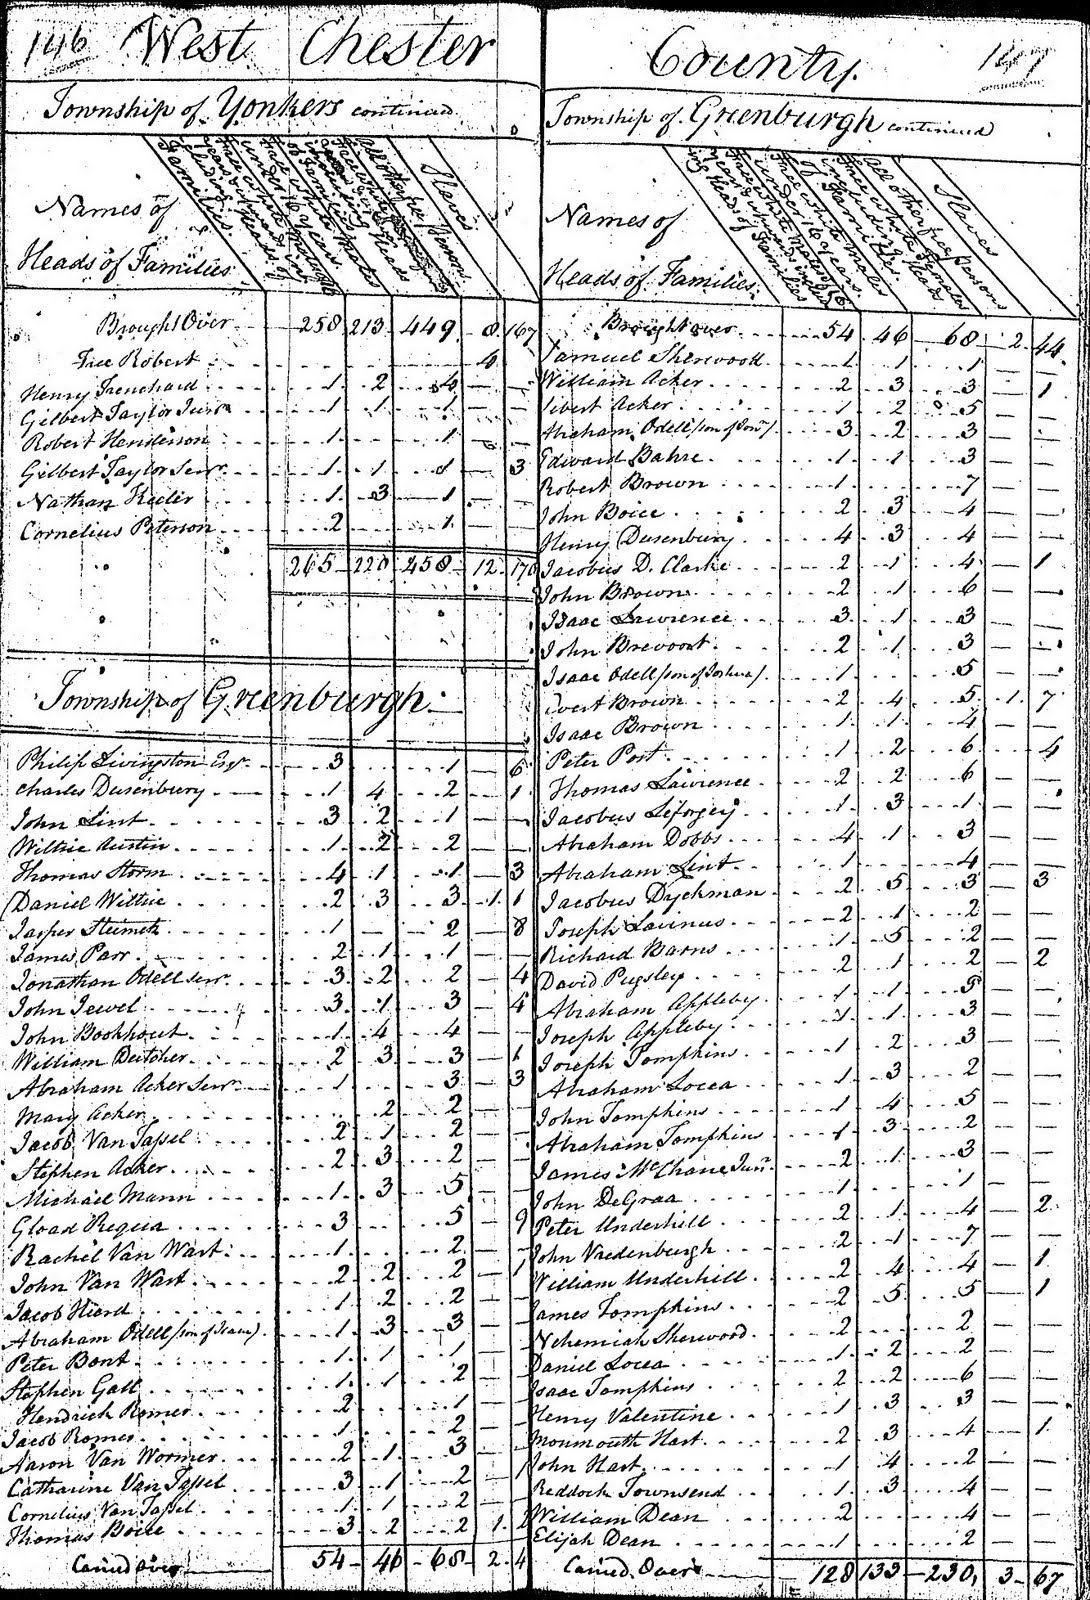 146 West Chester
Township of Yonkers continued
Names of
Heads of Families
Free white Males of 16 years upwards including Heads of Families
Free white Males under 16 years
Free white Females including Heads of Families
All other free Persons
Slaves
Brought Over 258 213 449 8 167
Free Robert 4
Henry Trenchard 1 2 4 — —
Gilbert Taylor Junr 1 1 1 — —
Robert Henderson 1 1 — —
Gilbert Taylor Senr 1 1 1 3
Nathan Keeler 1 3 1 — —
Cornelius Peterson 2 1 — —
265 220 458 12 170
Township of Greenburgh
Philip Livingston Esqr 3 1 — 6
Charles Dusenbury 1 4 2 — 1
John Lint 3 2 1 — —
Wiltsie Austin 1 2 2 — —
Thomas Storm 4 1 1 — 3
Daniel Wiltsie 2 3 3 1 1
Jasper 1 — 2 — 8
James Parr 2 1 1 — —
Jonathan Odell Senr 3 2 2 — 4
John Jewel 3 1 3 — 4
John Bookhout 1 4 4 — —
William Deitcher 2 3 3 — 1
Abraham Acker Senr 1 3 — 3
Mary Acker 2 2 — —
Jacob Van Tassel 2 1 2 — —
Stephen Acker 2 3 2 — —
Michael Mann 1 3 5 — —
Gload Requa 3 5 — 9
Rachel Van Wart 1 2 — —
John Van Wart 2 2 2 — 1
Jacob 1 2 2 — —
Abraham Odell (son of Isaac) 1 3 3 — —
Peter Bont 1 1 1 — —
Stephen Gall 1 1 2 — —
Hendrick Romer 2 1 — —
Jacob Romer 1 2 — —
Aaron Van Wormer 2 1 3 — —
Catharine Van Tassel 3 1 2 — 1
Cornelius Van Tassel 1 1 2 — —
Thomas Boice 3 2 2 1 2
Carried Over 54 46 68 2 4
County 147
Township of Greenburgh continued
Names of
Heads of Families
Free white Males of 16 years and upwards including Heads of Families
Free white Males under 16 years
Free white Females including Heads of Families
All other free persons
Slaves
Brought over 54 46 68 2 44
Samuel Sherwood 1 1 1 — —
William Acker 2 3 3 — 1
Sibert Acker 1 2 5 — —
Abraham Odell (son of Jonn) 3 2 3 — —
Edward Bahre 1 1 3 — —
Robert Brown 1 7 — —
John Boice 2 3 4 — —
Henry Dusenbury 4 3 4 — —
Jacobus D. Clarke 2 1 4 — 1
John Brown 2 1 6 — —
Isaac Lawrence 3 1 3 — —
John Brevoort 2 1 3 — —
Isaac Odell (son of Joshua) 1 5 — —
Evert Brown 2 4 5 1 7
Isaac Brown 1 1 4 — —
Peter Post 1 2 6 4
Thomas Lawrence 2 2 6 — —
Jacobus Leforgey 1 3 1 — —
Abraham Dobbs 4 1 3 — —
Abraham Lint 1 4 — —
Jacobus Dyckman 2 5 3 — 3
Joseph Lavinus 2 1 2 — —
Richard Barns 1 5 2 — —
David Pugsley 2 1 2 — 2
Abraham Appleby 1 1 5 — —
Joseph Appleby 1 1 3 — —
Joseph Tompkins 1 2 3 — —
Abraham Locea 1 3 2 — —
John Tompkins 1 4 5 — —
Abraham Tompkins 1 3 2 — —
James McChane Junr 2 1 3 — —
John DeGraa 1 1 — —
Peter Underhill 2 1 4 — 2
John Vredenburgh 2 1 7 — —
William Underhill 2 4 4 — 1
James Tompkins 2 5 5 — 1
Nehemiah Sherwood 2 2 — —
Daniel Locea 1 2 2 — —
Isaac Tompkins 2 2 6 — —
Henry Valentine 1 3 3 — —
Monmouth Hart 2 3 4 — 1
John Hart 1 4 2 — —
Reddock Townsend 1 3 4 — —
William Dean 2 4 — —
Elijah Dean 1 2 — —
Carried Over 128 133 230 3 67